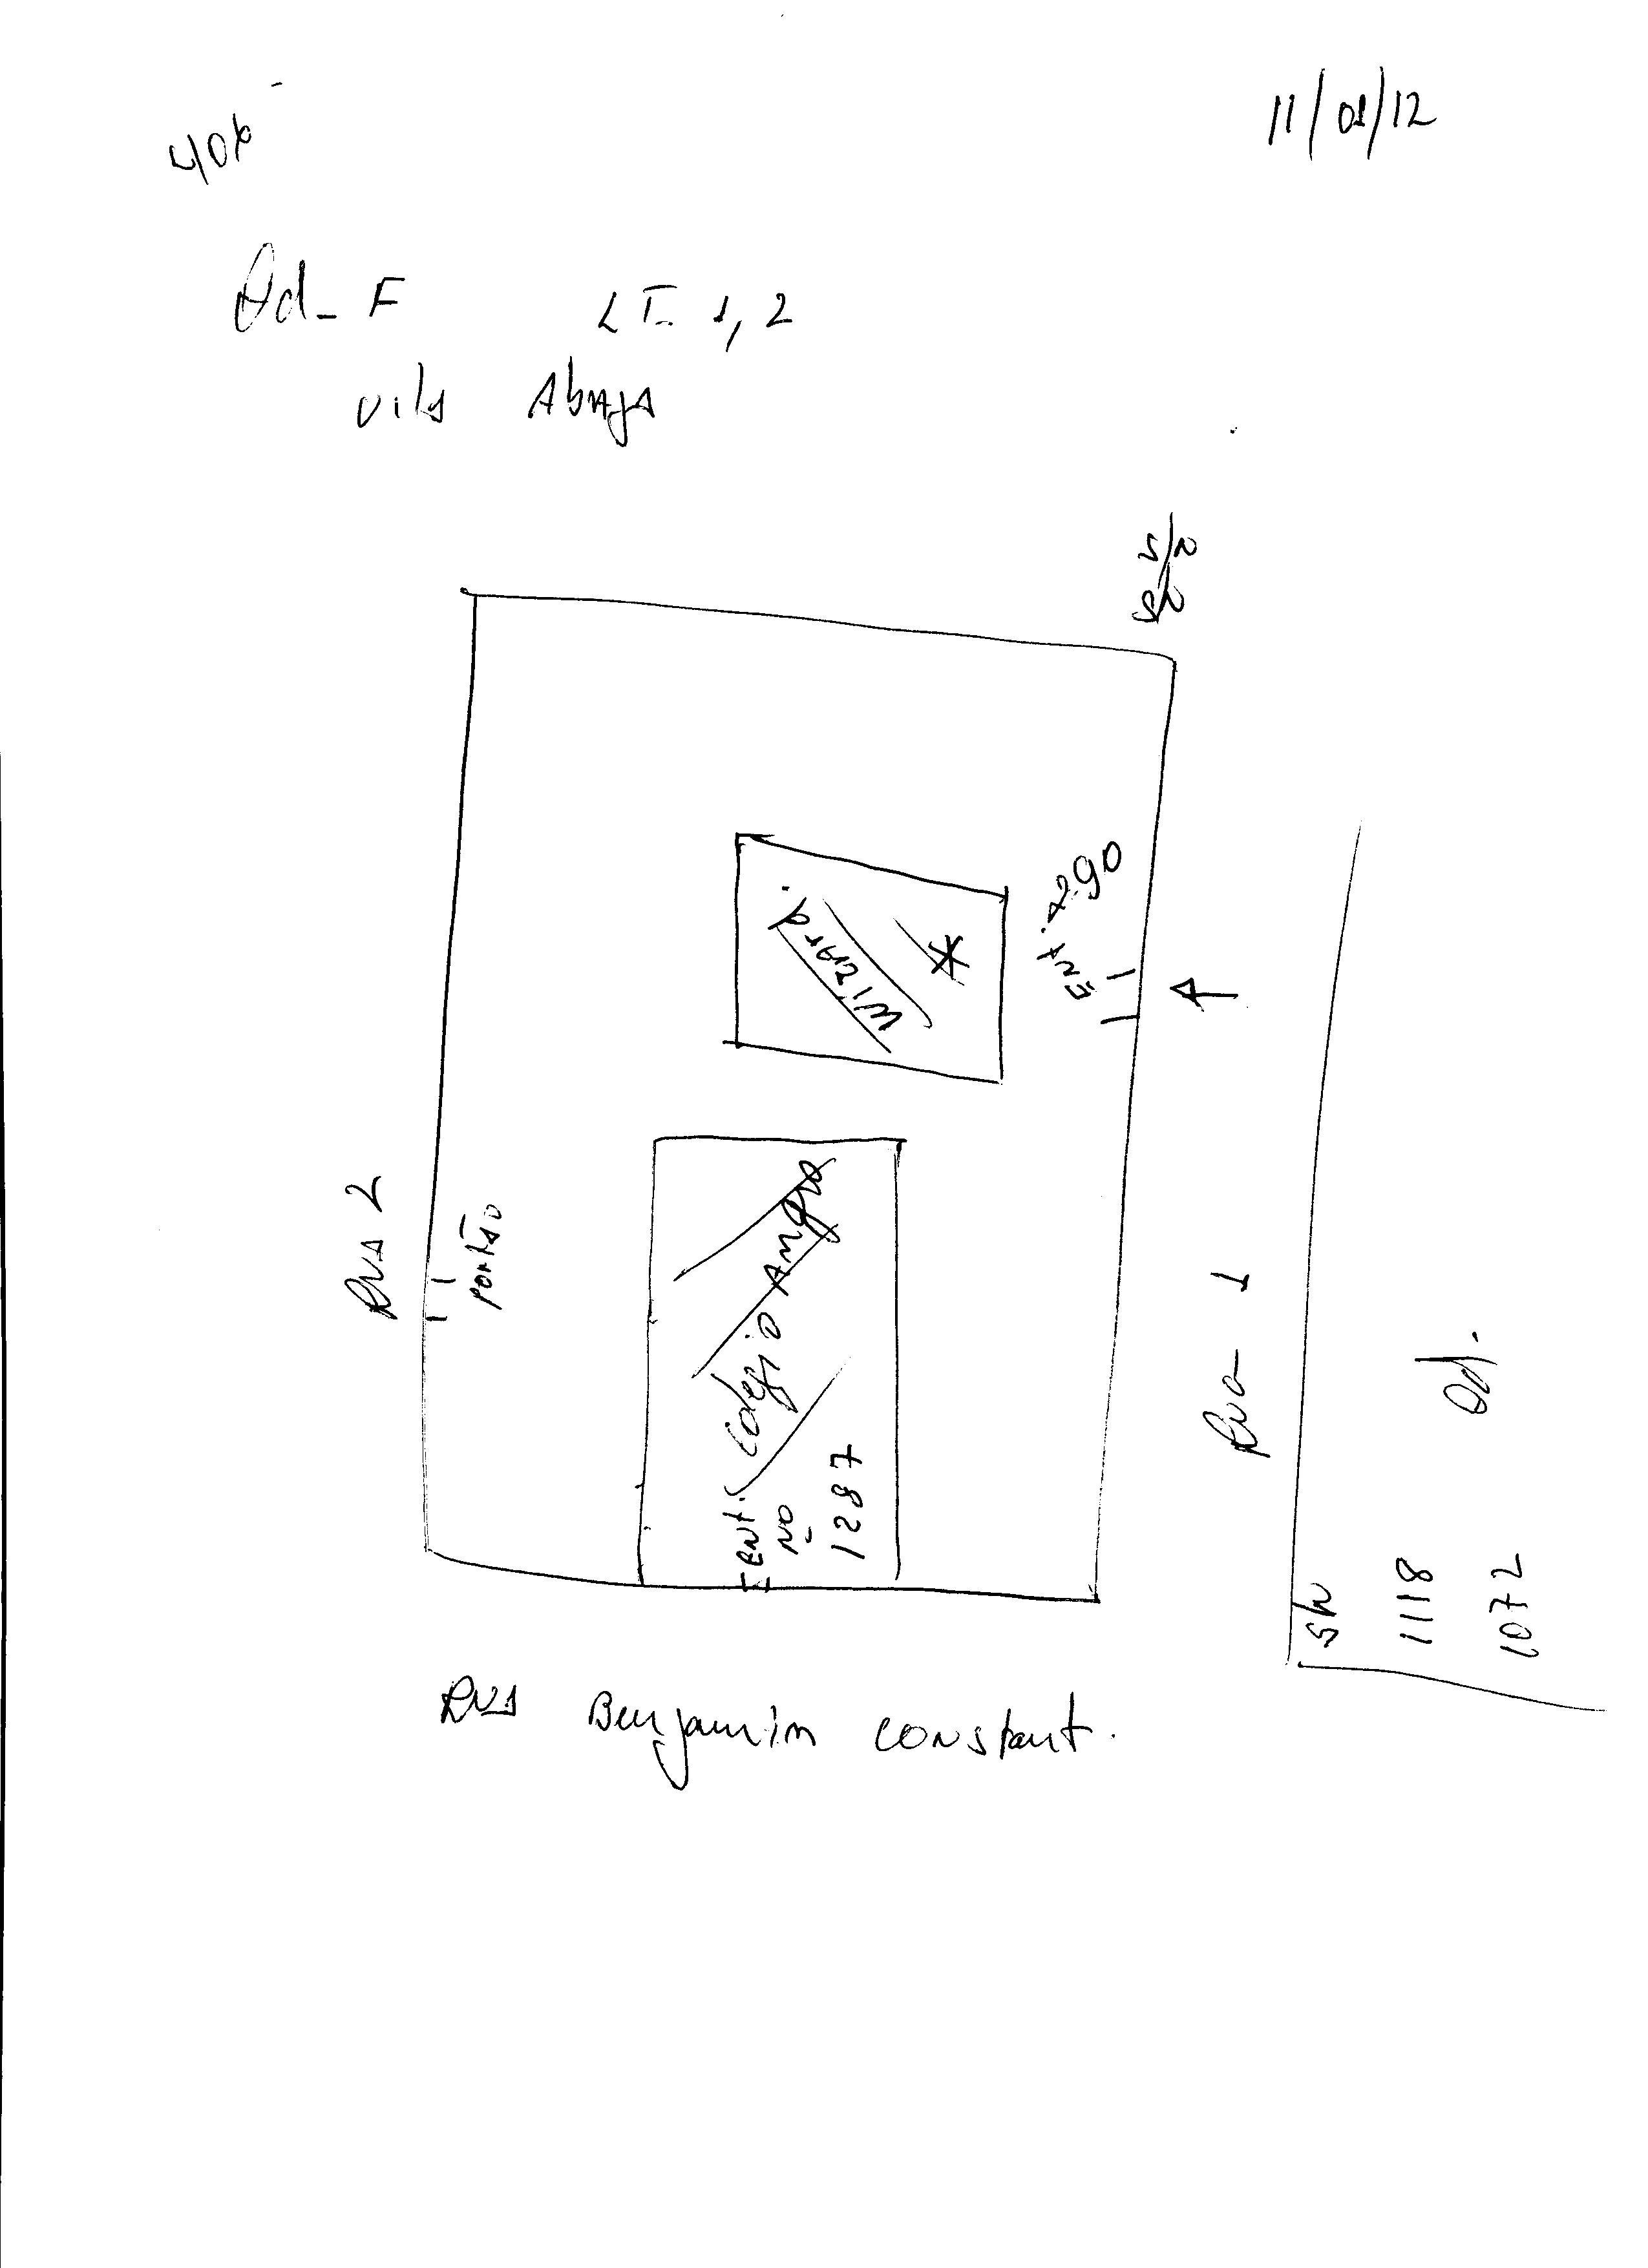 11/01/12
Qd- F LT- 1, 2
Vila Abraja
S/N
S/N
Wizard.
*
Ent. 290
Rua 2
portão
Colégio Angro
Ent.
Nº
1287
Rua 1
Qd.
S/N
1118
1072
Rua Benjamin Constant.